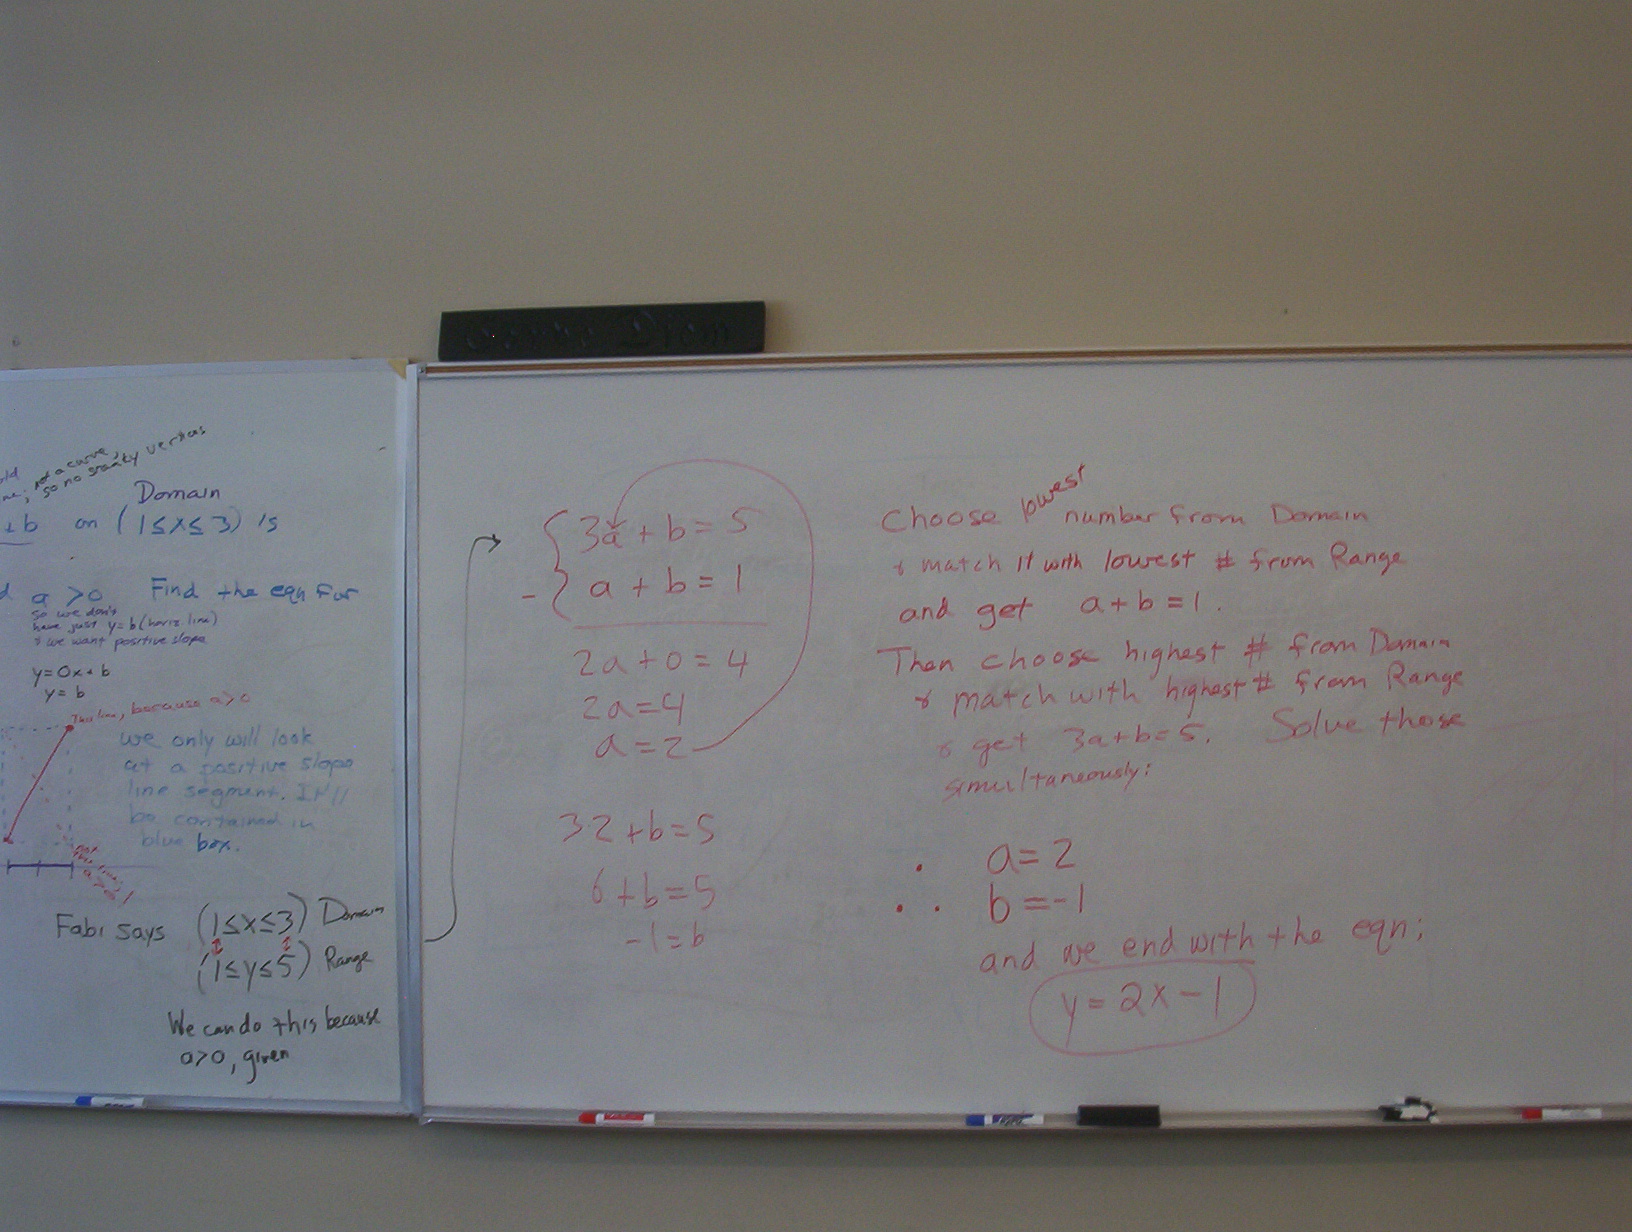 not a curve,
so no snazzy vertex
Domain
+b on (1≤x≤3) is
a >0 Find the eqn for
so we don't
have just y=b (horiz. line)
& we want positive slope
y=0x+b
y=b
This line, because a>0
we only will look
at a positive slope
line segment. It'll
be contained in
blue box.
not
this line;
Fabi says (1≤x≤3) Domain
(1≤y≤5) Range
We can do this because
a>0, given
3a+b=5
- a+b=1
2a+0=4
2a=4
a=2
3·2+b=5
6+b=5
-1=b
Choose lowest number from Domain
& match it with lowest # from Range
and get a+b=1.
Then choose highest # from Domain
& match with highest # from Range
& get 3a+b=5. Solve those
simultaneously:
∴ a=2
b=-1
and we end with the eqn:
y=2x-1